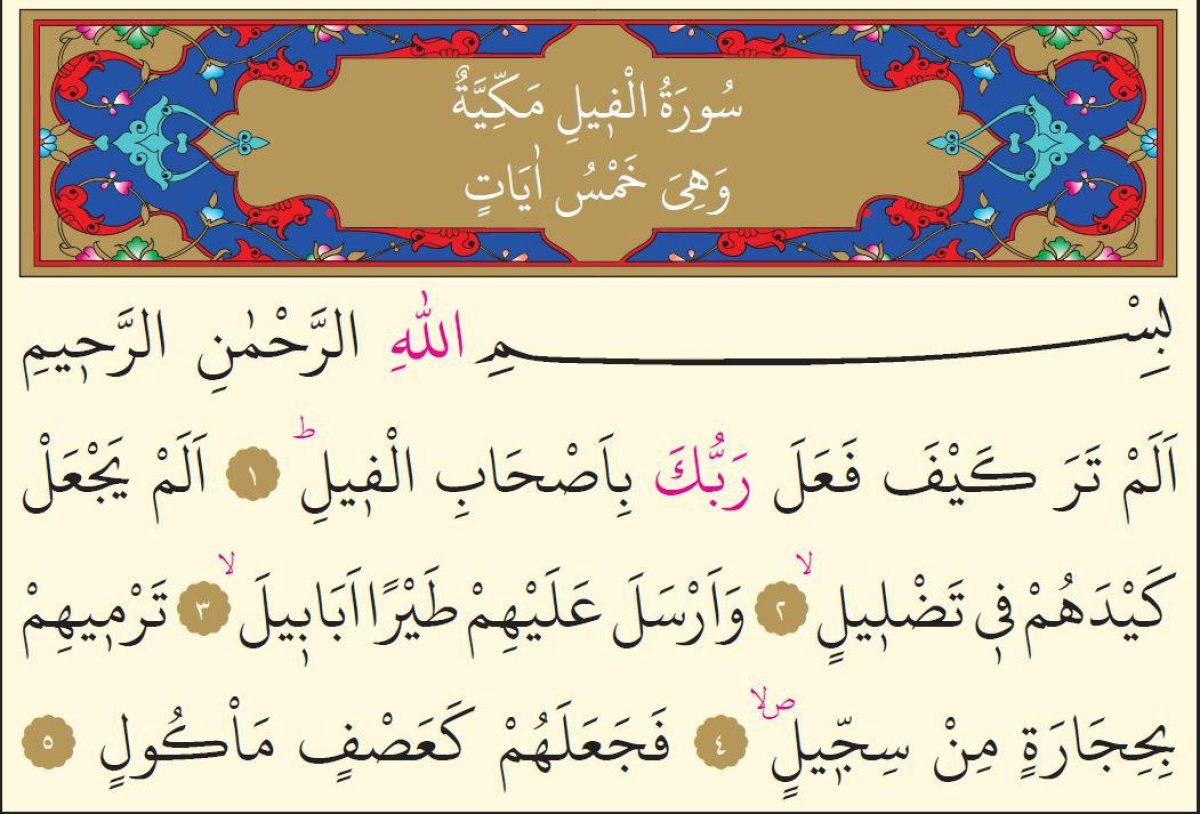 سُورَةُ الْفٖيلِ مَكِّيَّةٌ
وَهِىَ خَمْسُ اٰيَاتٍ
بِسْمِ اللّٰهِ الرَّحْمٰنِ الرَّحٖيمِ
اَلَمْ تَرَ كَيْفَ فَعَلَ رَبُّكَ بِاَصْحَابِ الْفٖيلِؕ ١ اَلَمْ يَجْعَلْ
كَيْدَهُمْ فٖى تَضْلٖيلٍۙ ٢ وَاَرْسَلَ عَلَيْهِمْ طَيْرًا اَبَابٖيلَۙ ٣ تَرْمٖيهِمْ
بِحِجَارَةٍ مِنْ سِجّٖيلٍۙࣕ ٤ فَجَعَلَهُمْ كَعَصْفٍ مَاْكُولٍ ٥